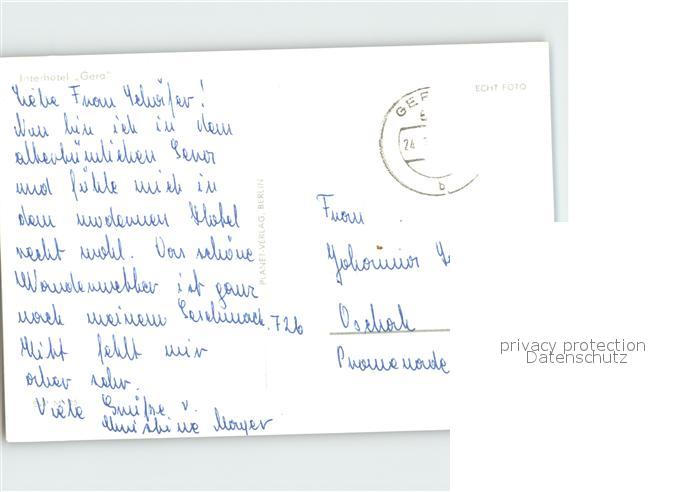 Interhotel „Gera"
Liebe Frau Schäfer!
Nun bin ich in dem
altertümlichen Gera
und fühle mich in
dem modernen Hotel
recht wohl. Das schöne
Wanderwetter ist ganz
nach meinem Geschmack.
fehlt mir
aber sehr.
Viele Grüße v.
Christine Mayer
PLANET-VERLAG, BERLIN
ECHT FOTO
GER
24
b
Frau
Johanna
726 Oschatz
Promenade
privacy protection
Datenschutz